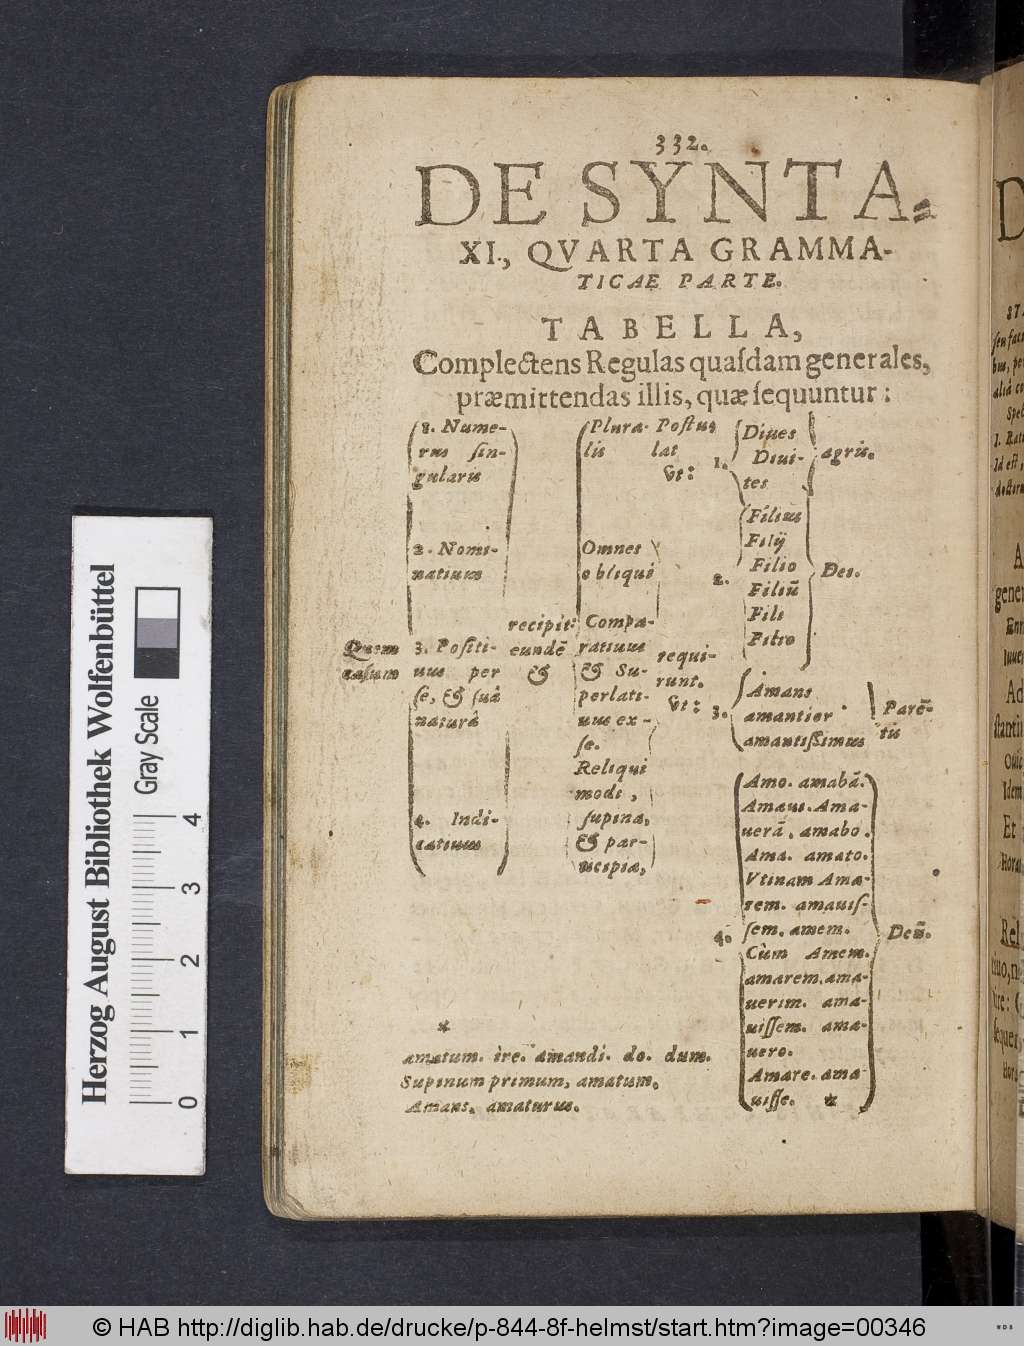 332.
DE SYNTA=
XI., QVARTA GRAMMA-
TICAE PARTE.
TABELLA,
Complectens Regulas quaſdam generales,
præmittendas illis, quæ ſequuntur:
Quem
caſum
1. Nume-
rus ſin-
gularis
2. Nomi-
natiuus
3. Poſiti-
uus per
ſe, & ſuâ
naturâ
4. Indi-
catiuus
recipit:
eundē
&
Plura-
lis
Omnes
obliqui
Compa-
ratiuus
& Su-
perlati-
uus ex-
ſe.
Reliqui
modi,
ſupina,
& par-
ticipia,
Poſtus
lat
vt:
requi-
runt.
vt:
1.
Diues
Diui-
tes
agris.
2.
Filius
Filij
Filio
Filiū
Fili
Filio
Dei.
3.
Amans
amantior
amantiſſimus
Parē-
tis
4.
Amo. amabā.
Amaui. Ama-
uerā. amabo.
Ama. amato.
Vtinam Ama-
rem. amauiſ-
ſem. amem.
Cùm Amem.
amarem. ama-
uerim. ama-
uiſſem. ama-
uero.
Amare. ama
uiſſe. *
Deū.
*
amatum. ire. amandi. do. dum.
Supinum primum, amatum.
Amans. amaturus.
Herzog August Bibliothek Wolfenbüttel
Gray Scale
0 1 2 3 4
© HAB http://diglib.hab.de/drucke/p-844-8f-helmst/start.htm?image=00346